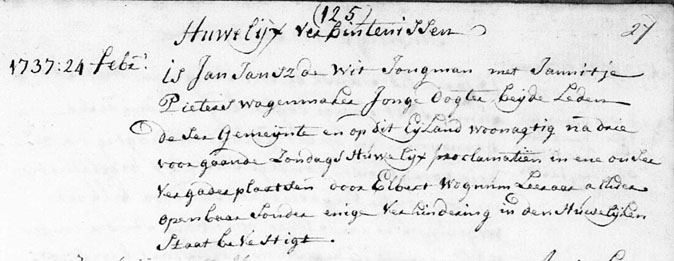 (125)
Huwelijx verbintenissen 27
1737:24 febr: is Jan Jansz de Wit Jongman met Jannitje
Pieters wagenmaker Jonge dogter beÿde Leden
deser Gemeÿnte en op dit EÿLand woonagtig na drie
voorgaande Zondags Huwelijx proclamatien in ene onser
vergaderplaatsen voor Elbert Wognum Leraar alhier
openbaar sonder enige verhindering in den Huwelijken
Staat bevestigt.